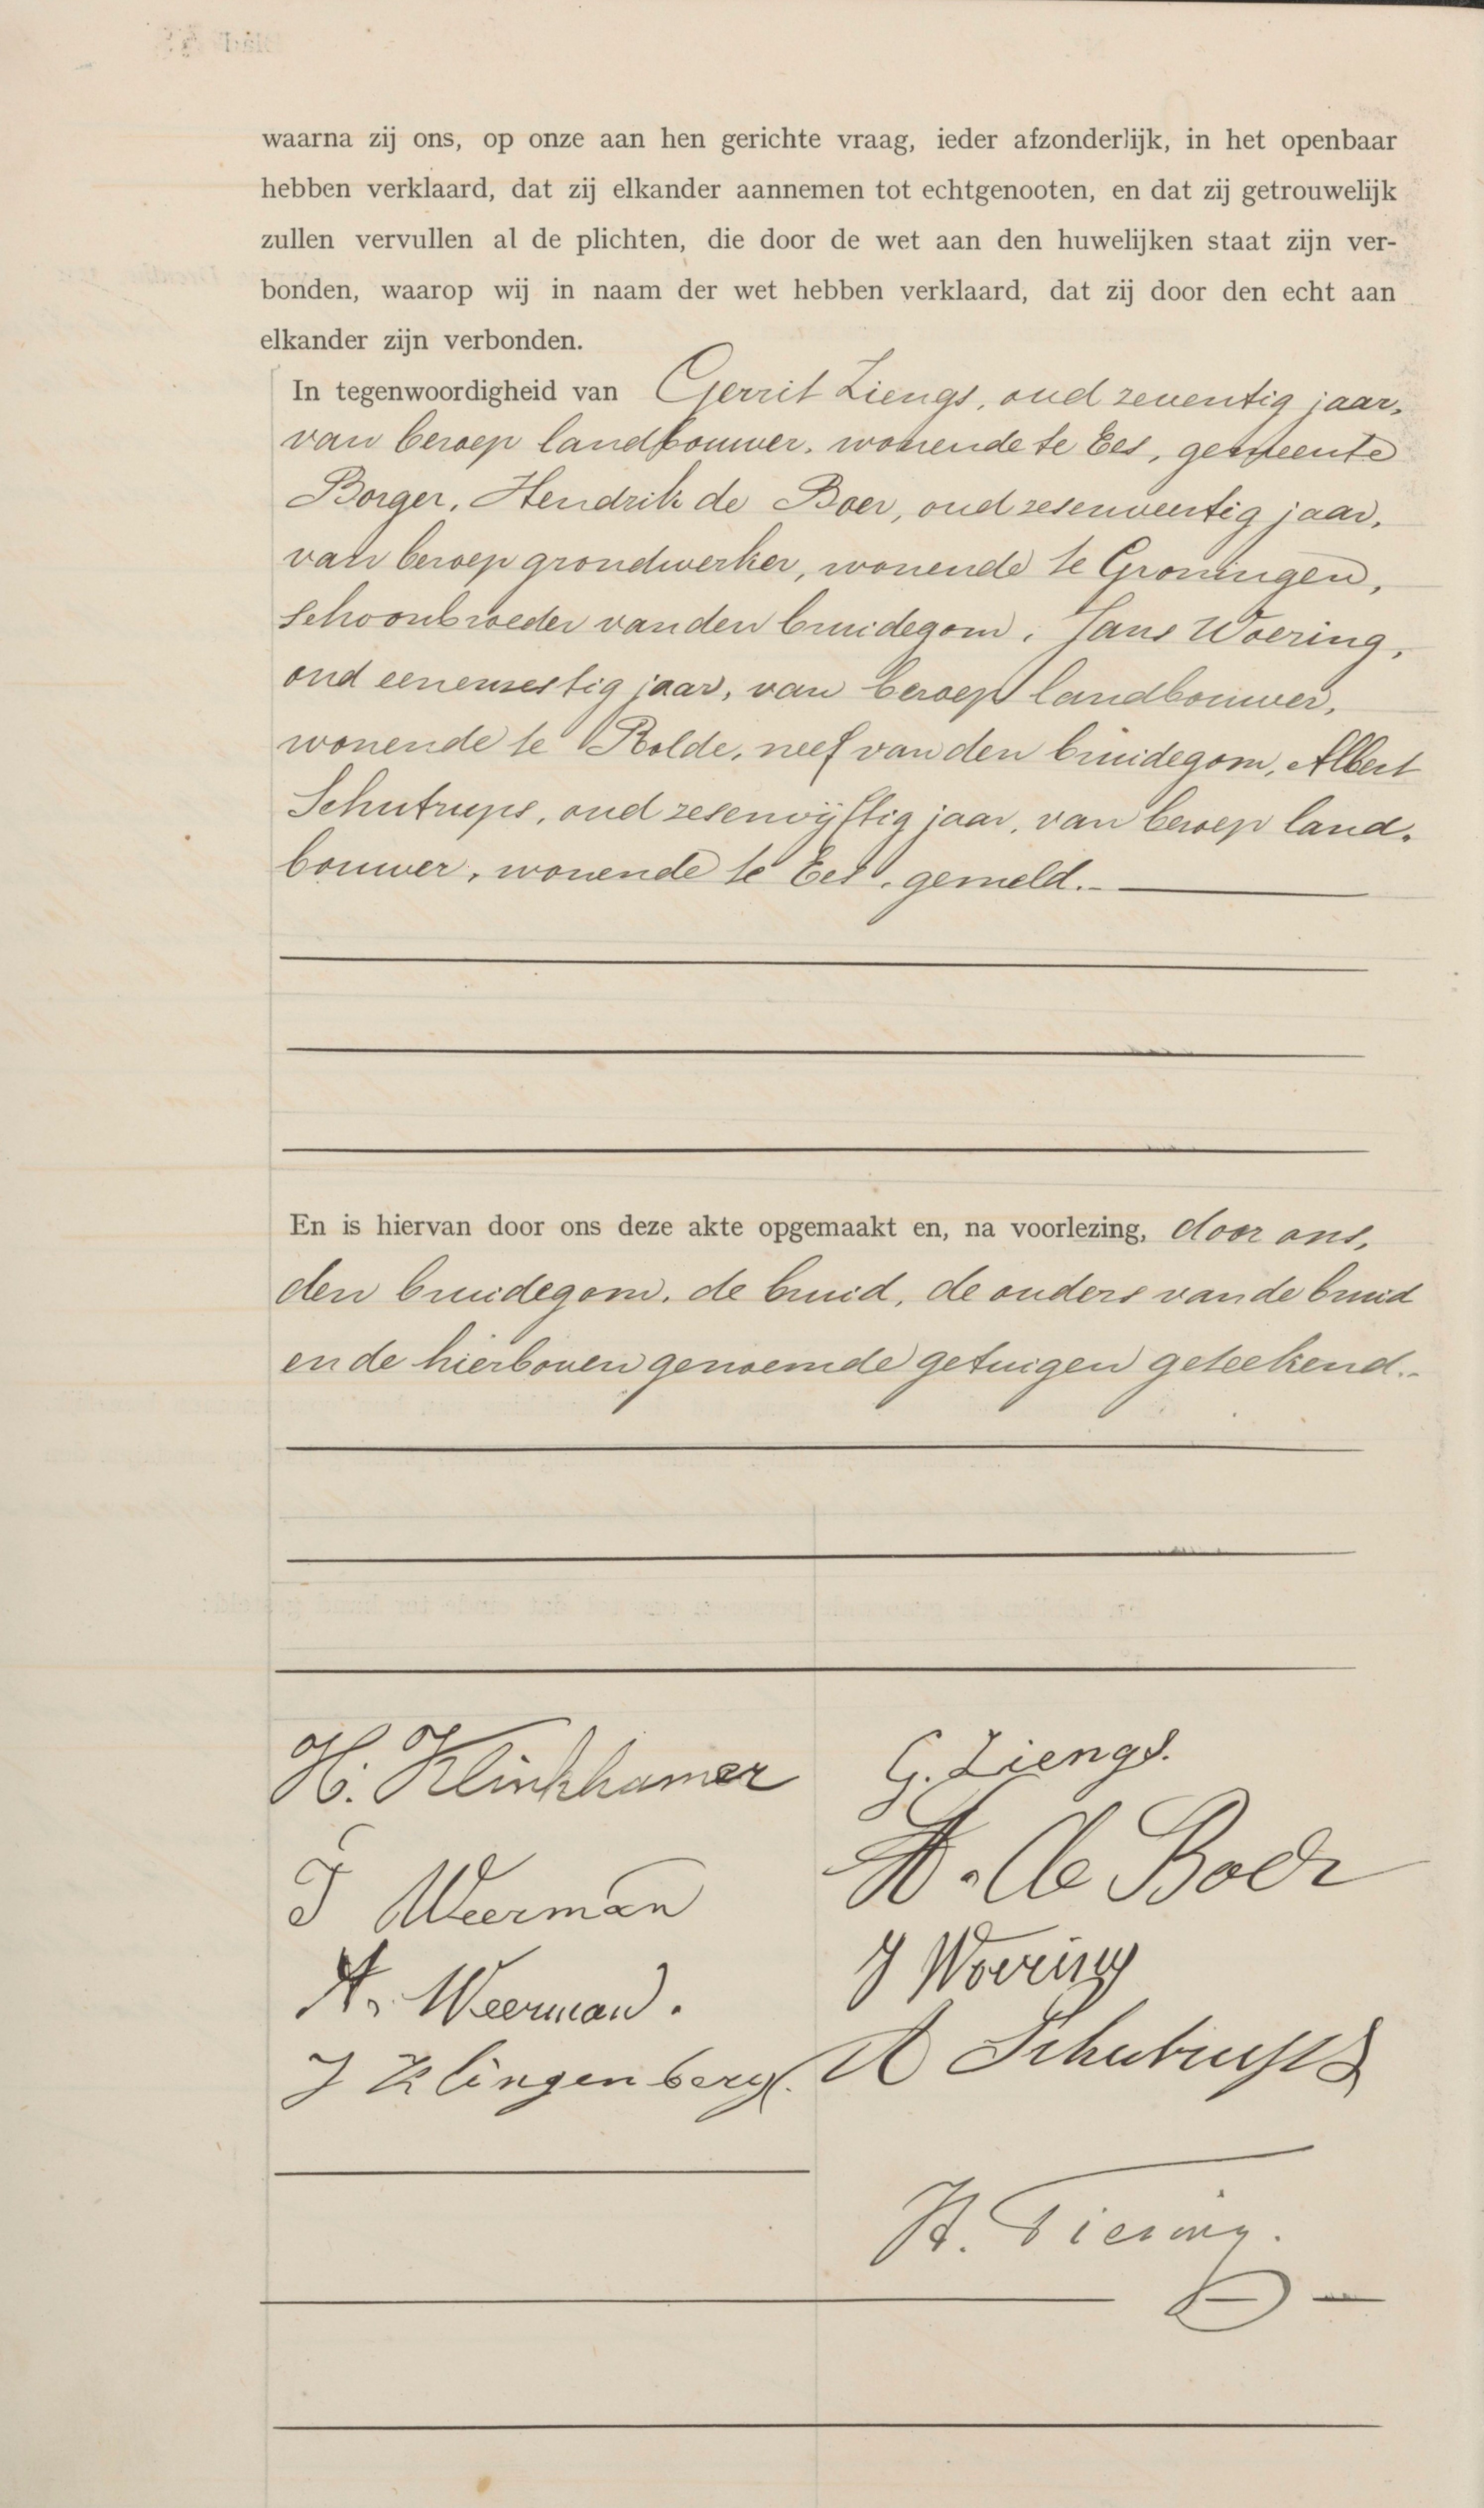 waarna zij ons, op onze aan hen gerichte vraag, ieder afzonderlijk, in het openbaar
hebben verklaard, dat zij elkander aannemen tot echtgenooten, en dat zij getrouwelijk
zullen vervullen al de plichten, die door de wet aan den huwelijken staat zijn ver-
bonden, waarop wij in naam der wet hebben verklaard, dat zij door den echt aan
elkander zijn verbonden.
In tegenwoordigheid van Gerrit Ziengs, oud zeventig jaar,
van beroep landbouwer, wonende te Ees, gemeente
Borger, Hendrik de Boer, oud zesenveertig jaar,
van beroep grondwerker, wonende te Groningen,
schoonbroeder van den bruidegom, Jans Woering,
oud eenenzestig jaar, van beroep landbouwer,
wonende te Rolde, neef van den bruidegom, Albert
Schutrups, oud zesenvijftig jaar, van beroep land-
bouwer, wonende te Ees, gemeld.-
En is hiervan door ons deze akte opgemaakt en, na voorlezing, door ons,
den bruidegom, de bruid, de ouders van de bruid
en de hierboven genoemde getuigen geteekend.-
H. Klinkhamer
G. Ziengs.
J Weerman
H. de Boer
A. Weerman.
J Woering
J Klingenberg.
A Schutrups
H. Tiering.